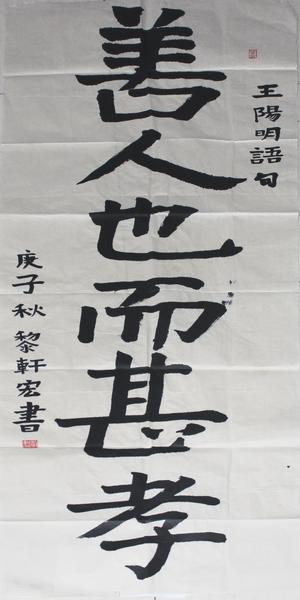 王陽明語句
善人也而甚孝
庚子秋黎軒宏書